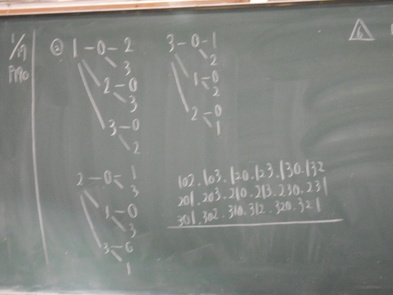 1/17
P110
② 1-0-2
3
2-0
3
3-0
2
3-0-1
2
1-0
2
2-0
1
2-0-1
3
1-0
3
3-0
1
102.103.120.123.130.132
201.203.210.213.230.231
301.302.310.312.320.321